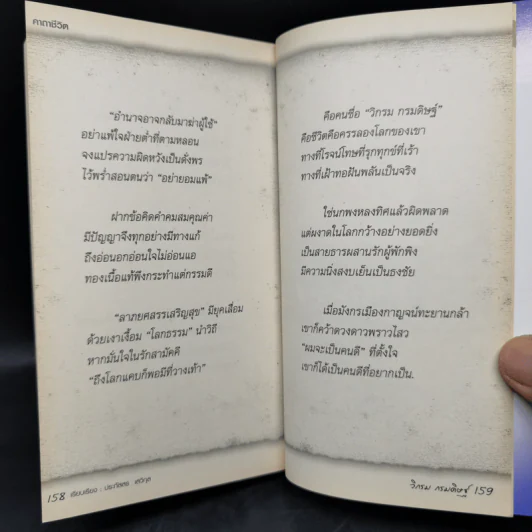 คาถาชีวิต
"อำนาจอาจกลับมาฆ่าผู้ใช้"
อย่าแพ้ใจฝ่ายต่ำที่ตามหลอน
จงแปรความผิดหวังเป็นดั่งพร
ไว้พร่ำสอนตนว่า "อย่ายอมแพ้"
ฝากข้อคิดคำคมสมคุณค่า
มีปัญญาจึงทุกอย่างมีทางแก้
ถึงอ่อนอกอ่อนใจไม่อ่อนแอ
ทองเนื้อแท้พึงกระทำแต่กรรมดี
"ลาภยศสรรเสริญสุข" มียุคเสื่อม
ด้วยเงาเงื้อม "โลกธรรม" นำวิถี
หากมั่นใจในรักสามัคคี
"ถึงโลกแคบก็พอมีที่วางเท้า"
158 เรียบเรียง : ประภัสสร เสวิกุล
คือคนชื่อ "วิกรม กรมดิษฐ์"
คือชีวิตคือครรลองโลกของเขา
ทางที่โรจน์โทษที่รุกทุกข์ที่เร้า
ทางที่เฝ้าทอฝันพลันเป็นจริง
ใช่นกพงหลงทิศแล้วผิดพลาด
แต่ผงาดในโลกกว้างอย่างยอดยิ่ง
เป็นสายธารผสานรักผู้พักพิง
มีความนิ่งสงบเย็นเป็นธงชัย
เมื่อมังกรเมืองกาญจน์ทะยานกล้า
เขาก็คว้าดวงดาวพราวไสว
"ผมจะเป็นคนดี" ที่ตั้งใจ
เขาก็ได้เป็นคนดีที่อยากเป็น.
วิกรม กรมดิษฐ์ 159